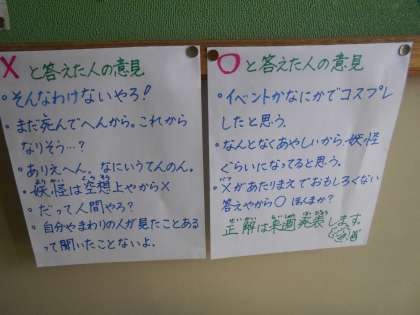 ×と答えた人の意見
・そんなわけないやろ!
・まだ死んでへんから。これから
なりそう…?
・ありえへん。なにいうてんのん。
・妖怪は空想上やから×
・だって人間やろ?
・自分やまわりの人が見たことある
って聞いたことないよ。
○と答えた人の意見
・イベントかなにかでコスプレ
したと思う。
・なんとなくあやしいから、妖怪
ぐらいになってると思う。
・×があたりまえでおもしろくない
答えやから○ ほんまか?
正解は来週発表します。